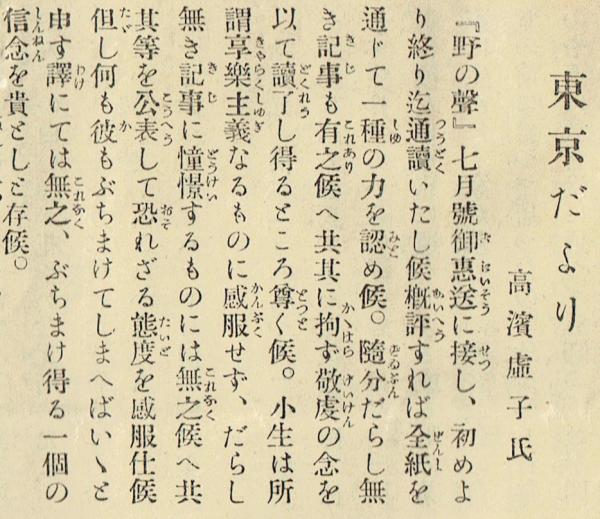 東京だより
高濱虛子氏
『野の聲』七月號御惠送に接し、初めよ
り終り迄通讀いたし候槪評すれば全紙を
通じて一種の力を認め候。隨分だらし無
き記事も有之候へ共其に拘ず敬虔の念を
以て讀了し得るところ尊く候。小生は所
謂享樂主義なるものに感服せず、だらし
無き記事に憧憬するものには無之候へ共
其等を公表して恐れざる態度を感服仕候
但し何も彼もぶちまけてしまへばいゝと
申す譯にては無之、ぶちまけ得る一個の
信念を貴としと存候。